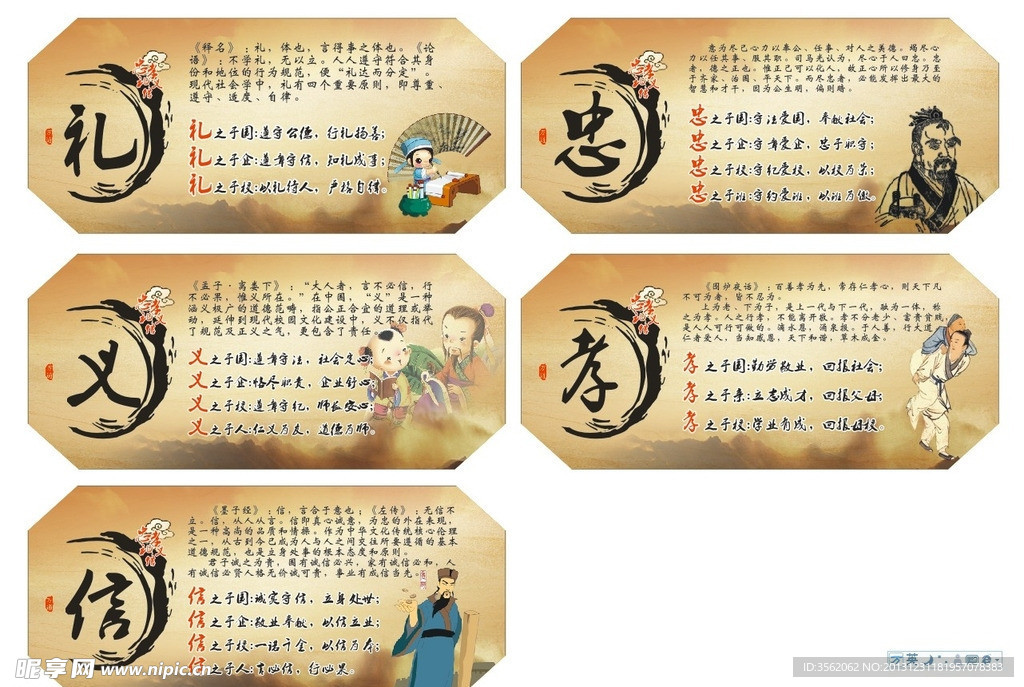 礼
《释名》:礼,体也,言得事之体也。《论
语》:不学礼,无以立。人人遵守符合其身
份和地位的行为规范,便“礼达而分定”。
现代社会学中,礼有四个重要原则,即尊重、
遵守、适度、自律。
礼之于国:遵守公德,行礼扬善;
礼之于企:遵章守信,知礼成事;
礼之于校:以礼待人,严格自律。
忠
意为尽己心力以奉公、任事、对人之美德。竭尽心
力以任其事、服其职。司马光认为,尽心于人曰忠。忠
者,德之正也。惟正己可以化人,故正心所以修身乃至
于齐家、治国、平天下。而尽忠者,必能发挥出最大的
智慧和才干,因为公生明,偏则暗。
忠之于国:守法爱国,奉献社会;
忠之于企:守章爱企,忠于职守;
忠之于校:守纪爱校,以校为荣;
忠之于班:守约爱班,以班为傲。
义
《孟子·离娄下》:“大人者,言不必信,行
不必果,惟义所在。”在中国,“义”是一种
涵义极广的道德范畴,指公正合宜的道理或举
动,延伸到现代校园文化建设中,义不仅指代
了规范及正义之气,更包含了责任
义之于国:遵章守法,社会定心;
义之于企:恪尽职责,企业舒心;
义之于校:遵章守纪,师长安心;
义之于人:仁义为友,道德为师。
孝
《围炉夜话》:百善孝为先,常存仁孝心,则天下凡
不可为者,皆不忍为。
上为老、下为子,是上一代与下一代,融为一体,称
之为孝。人之行孝,不能离开敬,孝不分老少、富贵贫贱
是人人可行可做的。滴水恩,涌泉报。于人善,行大道
仁者爱人,当知感恩,天下和谐,草木成金。
孝之于国:勤劳敬业,回报社会;
孝之于亲:立志成才,回报父母;
孝之于校:学业有成,回报母校。
信
《墨子经》:信,言合于意也;《左传》:无信不
立。信,从人从言。信即真心诚意,为忠的外在表现,
是一种高尚的品质和情操。作为中华文化传统核心伦理
之一,从古到今已成为人与人之间交往所要遵循的基本
道德规范,也是立身处事的根本态度和原则。
君子诚之为贵,国有诚信必兴,家有诚信必和,人
有诚信必贤人格无价诚可贵,事业有成信当先。
信之于国:诚实守信,立身处世;
信之于企:敬业奉献,以信立业;
信之于校:一诺千金,以信为本;
信之于人:言必信,行必果。
昵享网 www.nipic.cn
ID:3562062 NO:20131231181957078383